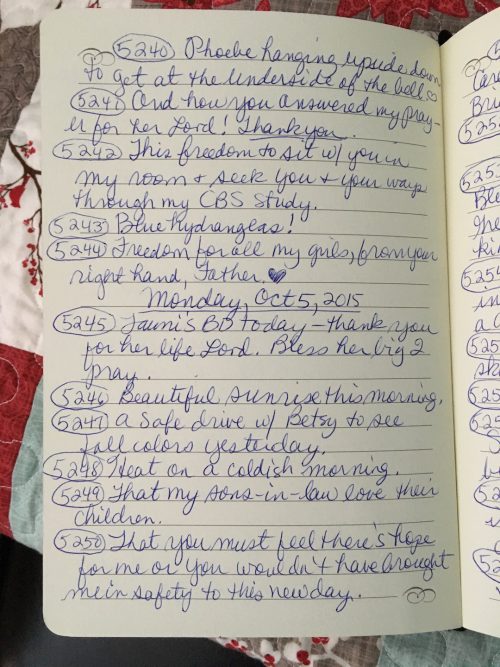 5240 Phoebe hanging upside down
to get at the underside of the bell ♡
5241 And how you answered my pray-
er for her Lord! Thank you.
5242 This freedom to sit w/ you in
my room + seek you + your ways
through my CBS study.
5243 Blue Hydrangeas!
5244 Freedom for all my girls, from your
right hand, Father. ♥
Monday, Oct 5, 2015
5245 Tauni's BD today – thank you
for her life Lord. Bless her big I
pray.
5246 Beautiful sunrise this morning.
5247 a safe drive w/ Betsy to see
fall colors yesterday.
5248 Heat on a coldish morning.
5249 That my sons-in-law love their
children.
5250 That you must feel there's hope
for me or you wouldn't have brought
me in safety to this new day.